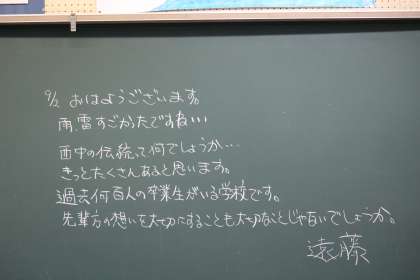 9/2 おはようございます。
雨、雷すごかったですね…
西中の伝統って何でしょうか…
きっとたくさんあると思います。
過去何百人の卒業生がいる学校です。
先輩方の想いを大切にすることも大切なことじゃないでしょうか。
遠藤